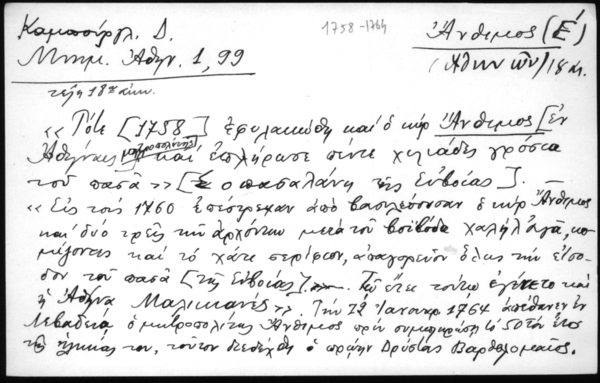 Καμπούργλ. Δ.
1758-1764
Ἄνθιμος (Ε΄)
Μνημ. Ἀθην. 1, 99
(Ἀθηνῶν) 18 αι.
τέλη 18ου αἰων.
«Τότε [1758] ἐφυλακώθη καὶ ὁ κὺρ Ἄνθιμος [ἐν
Ἀθήναις μητροπολίτης καὶ ἐπλήρωσε πέντε χιλιάδες γρόσια
τοῦ πασᾶ» [ὁ πασαλάνη τῆς Εὐβοίας].
«Εἰς τοὺς 1760 ἐπέστρεψαν ἀπὸ βασιλεύουσαν ὁ κὺρ Ἄνθιμος
καὶ δύο τρεῖς τῶν ἀρχόντων μετὰ τοῦ βοϊβόδα Χαλὴλ Ἀγᾶ, κο-
μίζοντες καὶ τὸ χάτι σερίφιον, ἀπαγορεῦον ὅλως τὴν εἴσο-
δον τοῦ πασᾶ [τῆς Εὐβοίας]. Τῷ ἔτει τούτῳ ἐγένετο καὶ
ἡ Ἀθήνα Μαλικιανές». Τὴν 12 Ἰανουαρ. 1764 ἀπέθανεν ἐν
Λεβαδείᾳ ὁ μητροπολίτης Ἄνθιμος πρὶν συμπληρώσῃ τὸ 50τὸν ἔτος
τῆς ἡλικίας του, τοῦτον διεδέχθη ὁ πρώην Δρύστας Βαρθολομαῖος.